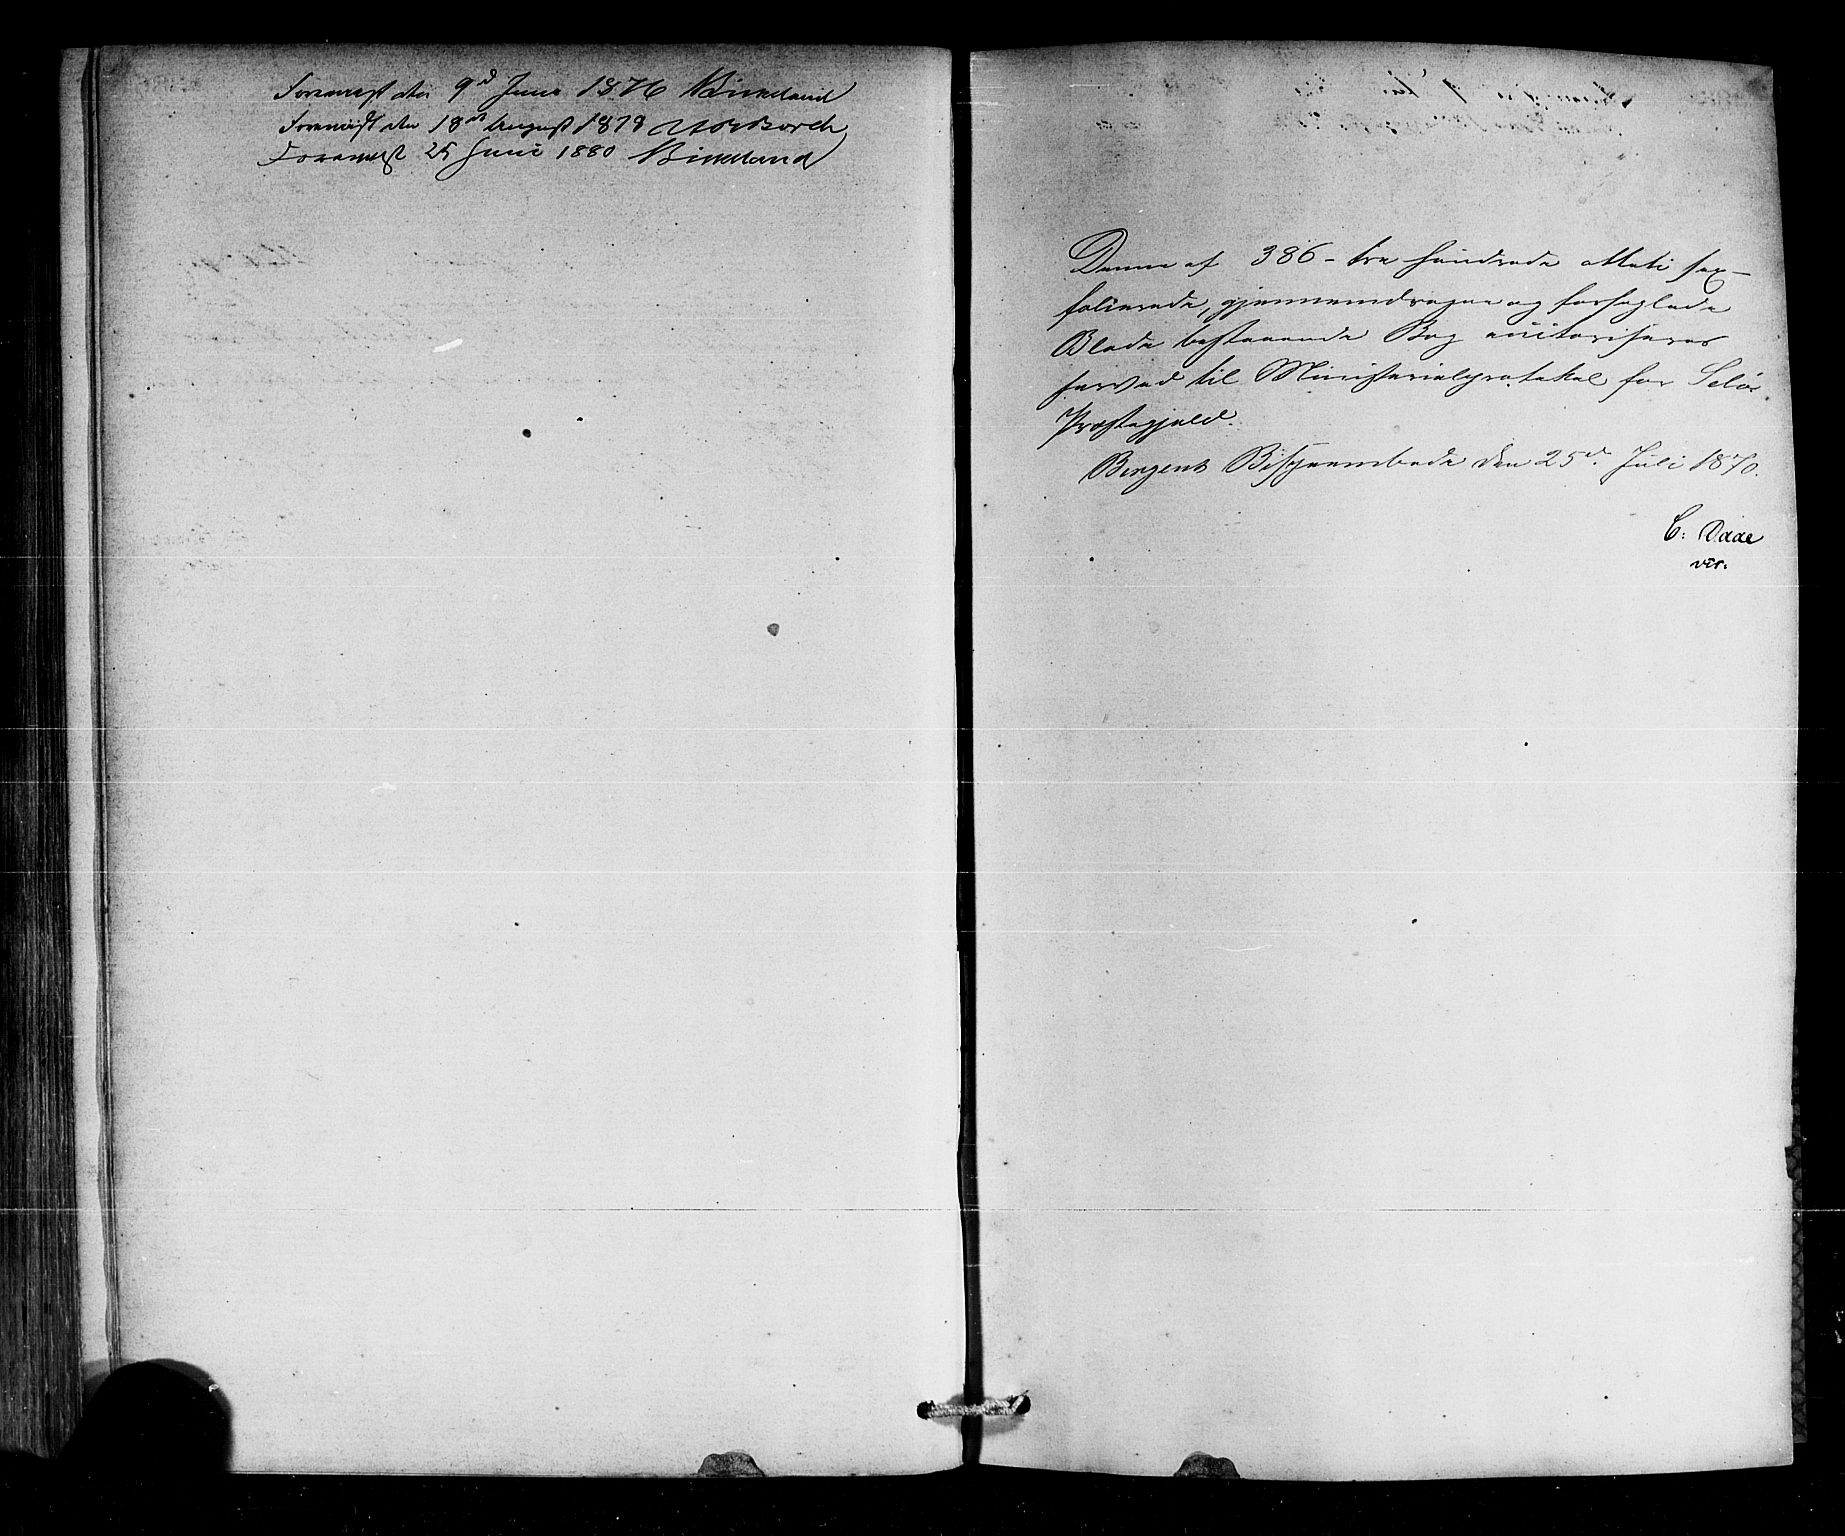 Foreviist den 9d Juni 1876 Birkeland
Foreviist den 18de August 1878
Foreviist 25 Juni 1880 Birkeland
Denne af 386 - tre hundrede otteti sex -
folierede, gjennemdragne og forseglede
Blade bestaaende Bog autoriseres
herved til Ministerialprotokol for Seløe
Præstegjeld.
Bergens Bispeembede den 25d. Juli 1870.
C. Daae
vic.